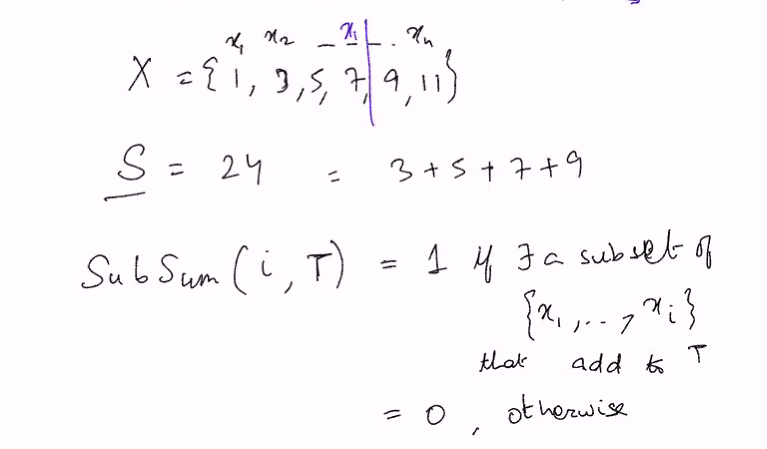 x₁ x₂ _ xᵢ _ . xₙ
X = {1, 3, 5, 7, 9, 11}
S = 24 = 3 + 5 + 7 + 9
SubSum (i, T) = 1 if ∃ a subset of
{x₁, .. , xᵢ}
that add to T
= 0 , otherwise